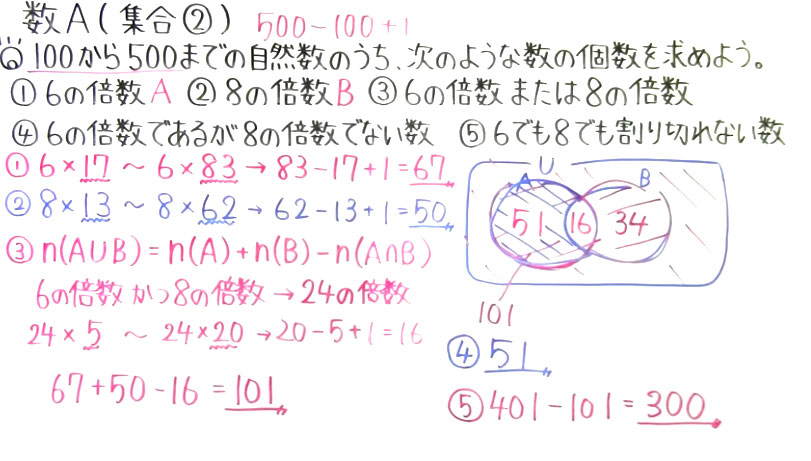 数A(集合②) 500-100+1
Q 100から500までの自然数のうち、次のような数の個数を求めよう。
① 6の倍数 A ② 8の倍数 B ③ 6の倍数または8の倍数
④ 6の倍数であるが8の倍数でない数 ⑤ 6でも8でも割り切れない数
① 6×17 ~ 6×83 → 83-17+1=67
② 8×13 ~ 8×62 → 62-13+1=50
③ n(A∪B)=n(A)+n(B)-n(A∩B)
6の倍数かつ8の倍数→24の倍数
24×5 ~ 24×20 →20-5+1=16
67+50-16=101
U
A B
51 16 34
101
④ 51
⑤ 401-101=300